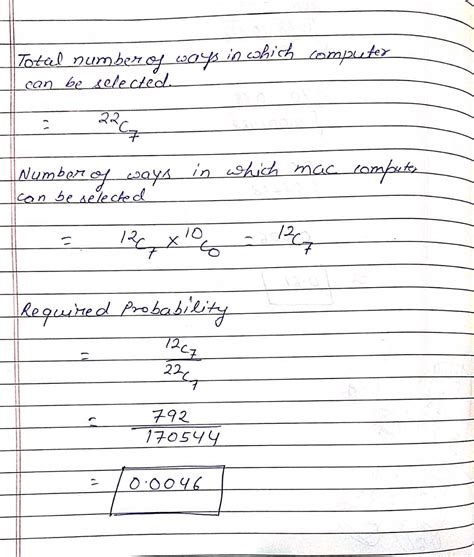 Total number of ways in which computer
can be selected.
= ²²C₇
Number of ways in which mac computer
can be selected
= ¹²C₇ × ¹⁰C₀ = ¹²C₇
Required Probability
= ¹²C₇ / ²²C₇
= 792 / 170544
= 0.0046